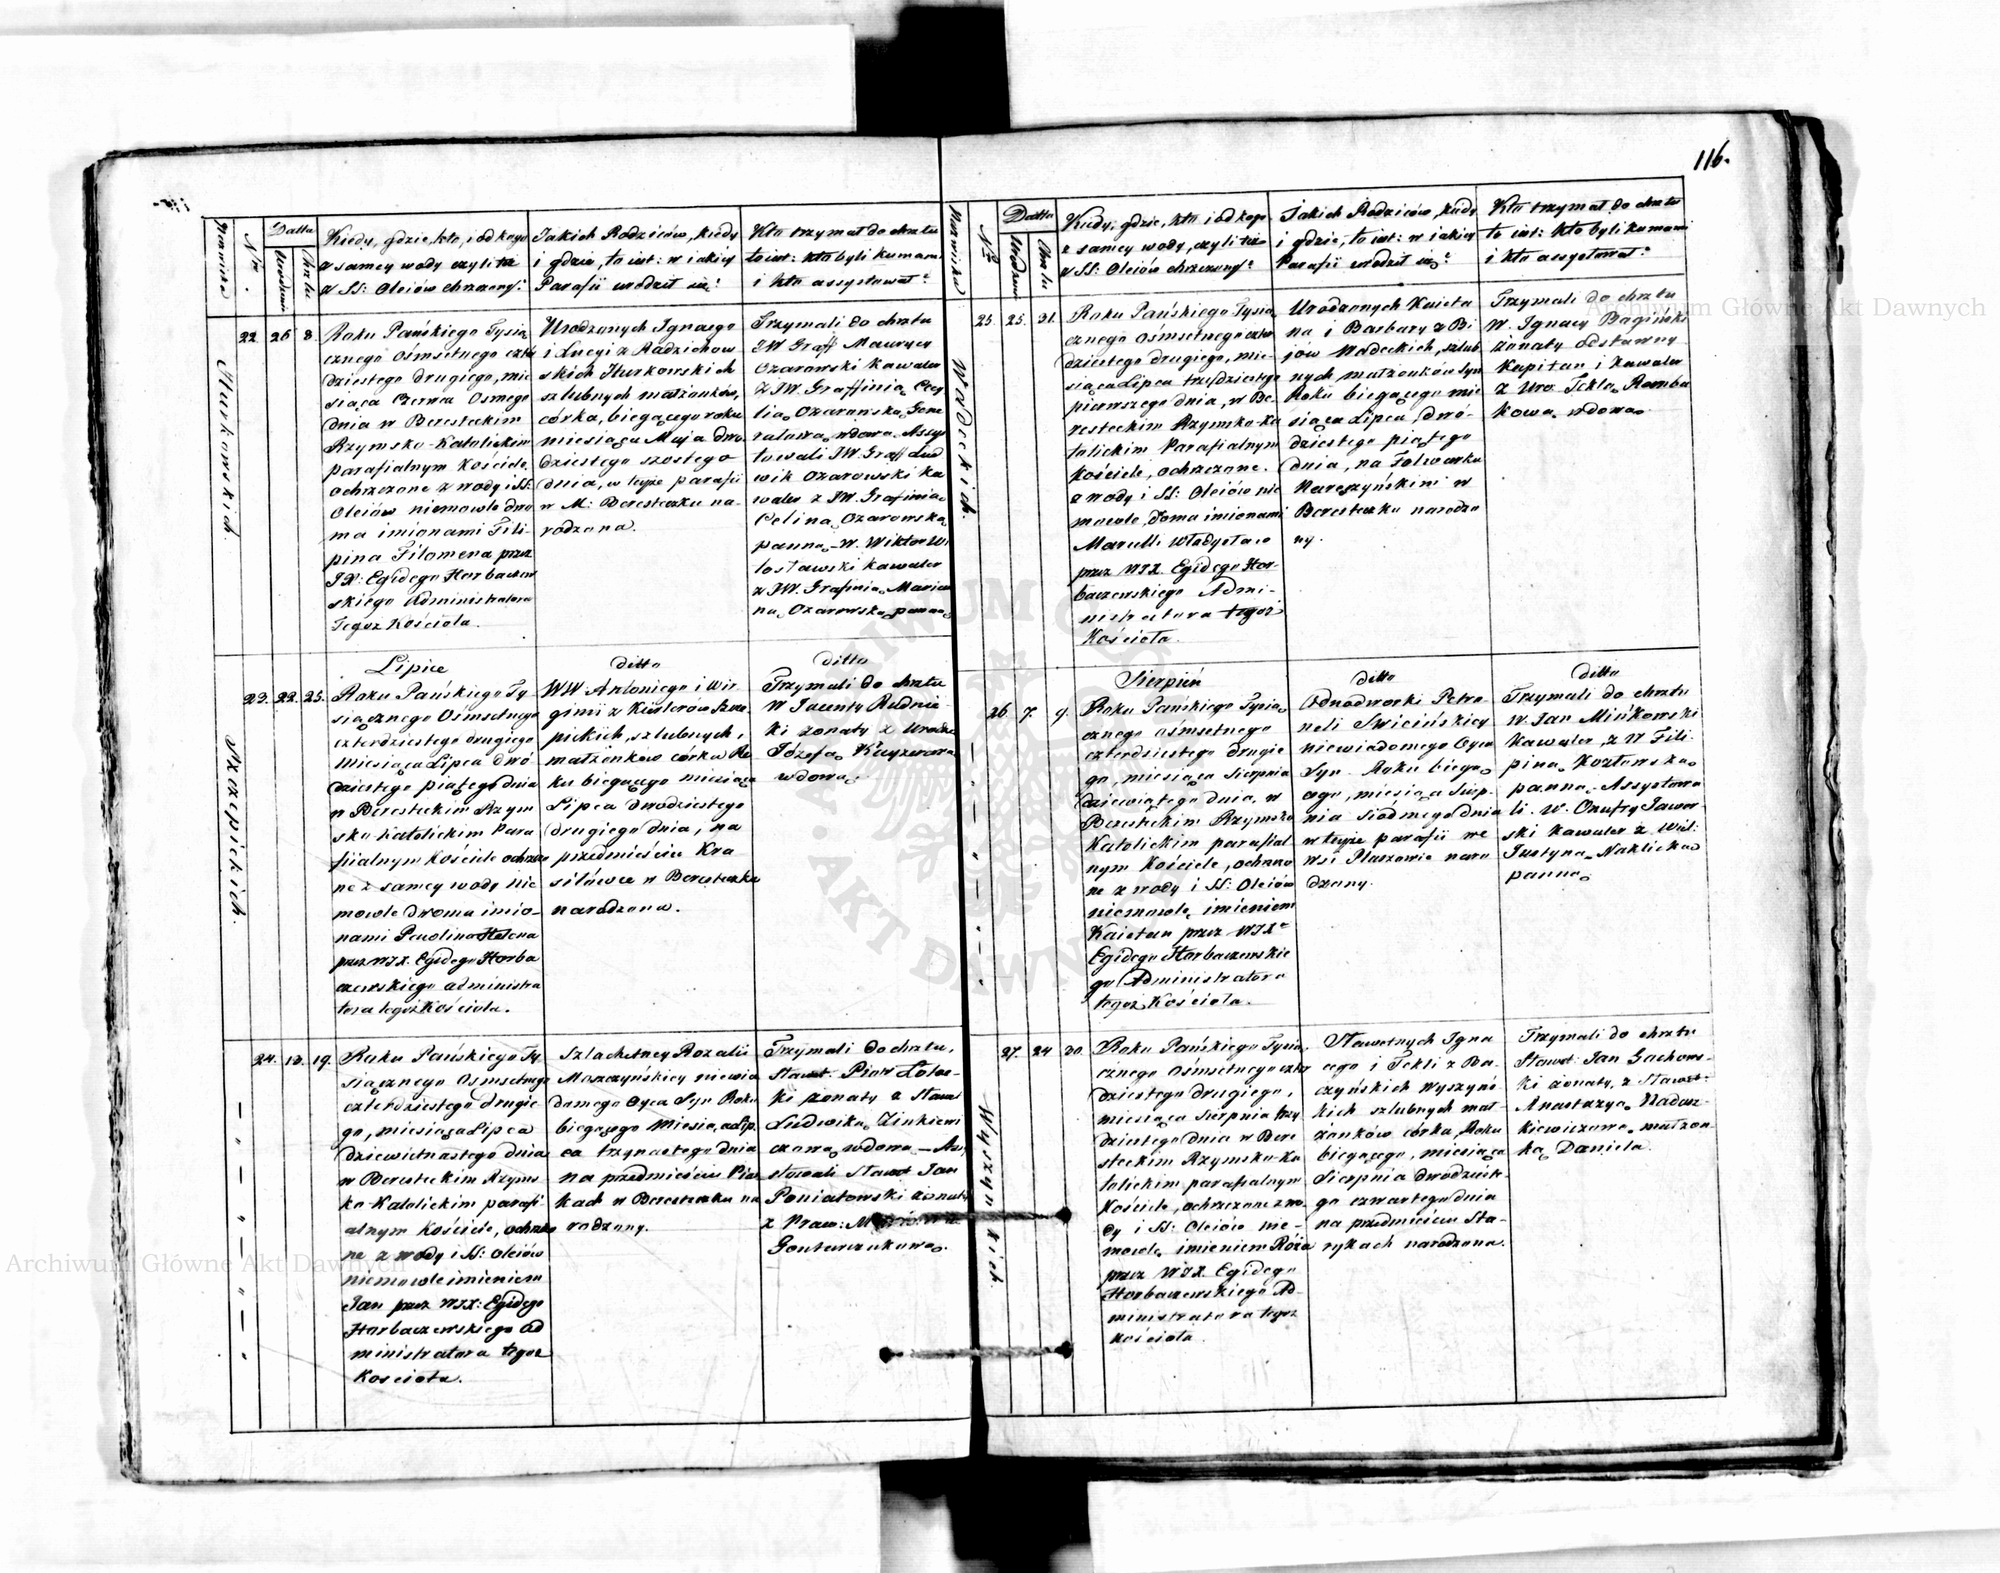 116.
Nazwiska
Nro
Datta
Urodzenia
Chrztu
Kiedy, gdzie, kto, i od kogo
z samey wody czyli też
z SS: Oleiów chrzczony?
Jakich Rodziców, kiedy
i gdzie, to iest: w iakiey
Parafii urodził się?
Kto trzymał do chrztu
to iest: kto byli kumami
i kto assystował?
Hurkowskich
22
26
8.
Roku Pańskiego Tysią
cznego Ośmsetnego czter
dziestego drugiego, mie
siąca Czerwca Osmego
dnia w Beresteckim
Rzymsko-Katolickim
parafialnym Kościele,
ochrzczone z wody i SS:
Oleiów niemowle dwo
ma imionami Fili-
pina Filomena przez
JX: Egidego Horbaczew
skiego Administratora
Tegoz Kościoła.
Urodzonych Ignacego
i Łucyi z Radzichow
skich Hurkowskich
szlubnych małżonków,
córka, biegącego roku
miesiąca Maja dwu
dziestego szostego
dnia, w teyże parafii
w M: Beresteczku na-
rodzona.
Trzymali do chrztu
JW Graff Maurycy
Ożarowski Kawaler
z JW. Graffinią Cecy
lią Ożarowską Gene
rałową wdową. Assys
towali JW. Graff Lud
wik Ożarowski ka
waler z JW. Grafinią
Celiną Ożarowską
panną - W. Wiktor Wi
tosławski kawaler
z JW. Grafinią Marian
ną Ożarowską panną
Szczepickich.
23.
22.
25.
Lipiec
Roku Pańskiego Ty-
siącznego Ośmsetnego
czterdziestego drugiego
Miesiąca Lipca dwó
dziestego piątego dnia
w Beresteckim Rzym
sko-katolickim Para
fijalnym Kościele ochrzczo
ne z samey wody nie
mowle dwoma imio-
nami Paulina Helena
przez WJX. Egidego Horba
czewskiego administra
tora tegoż Kościoła.
ditto
WW Antoniego i Wir
ginii z Kunterów Szcze
pickich, szlubnych,
małżonków córka Ro
ku biegącego miesiąca
Lipca dwudziestego
drugiego dnia, na
przedmieściu Kra
siłówce w Beresteczku
narodzona.
ditto
Trzymali do chrztu
W Jacenty Rudnic
ki żonaty z Urodzo
Józefą Kayzerową
wdową.
24.
13.
19.
Roku Pańskiego Ty
siącznego Osmsetnego
czterdziestego drugie
go, miesiąca Lipca
dziewietnastego dnia
w Beresteckim Rzyms
ko-Katolickim parafi
alnym Kościele, ochrzczo
ne z wody i SS: Oleiów
niemowle imieniem
Jan przez WJX: Egidego
Horbaczewskiego Ad
ministratora tegoż
Kościoła.
Szlachetney Rozalii
Moszczyńskiey niewia
domego Oyca Syn Roku
biegącego Miesiąca Lip
ca trzynastego dnia
na przedmieściu Pias
kach w Beresteczku na
rodzony.
Trzymali do chrztu,
Sławet. Piotr
ki żonaty z Sławet
Ludwiką Zinkiewi
czową wdową - Ass
stowali Sławet Jan
Poniatowski żonaty
z Praw:
Gontarczukową.
Nazwiska
Nro
Datta
Urodzenia
Chrztu
Kiedy, gdzie, kto, i od kogo
z samey wody, czyli też
z SS: Oleiów chrzczony?
Jakich Rodziców, kiedy
i gdzie, to iest: w iakiey
Parafii urodził się?
Kto trzymał do chrztu
to iest: kto byli kumami
i kto assystował?
Wodeckich.
25.
25.
31.
Roku Pańskiego Tysią
cznego ośmsetnego czter
dziestego drugiego, mie-
siąca Lipca trzydziestego
pierwszego dnia, w Be-
resteckim Rzymsko-Ka
tolickim Parafialnym
Kościele, ochrzczone.
z wody i SS: Oleiów nie
mowle, dwma imionami
Marcelli Władysław
przez WJX. Egidego Hor-
baczewskiego Admi-
nistratora tegoż
Kościoła.
Urodzonych Kaieta
na i Barbary z Bi
jów Wodeckich, szlub
nych małżonków Syn
Roku biegącego mie
siąca Lipca, dwó-
dziestego piątego
dnia, na Folwarku
Nareszyńskim w
Beresteczku narodzo
ny.
Trzymali do chrztu
W. Ignacy Bagiński
żonaty odstawny
Kapitan i kawaler
z Uro. Teklą Romba
kową wdową
26.
7.
9.
Sierpień
Roku Pańskiego Tysią
cznego ośmsetnego
czterdziestego drugie
go, miesiąca Sierpnia
dziewiątego dnia, w
Beresteckim Rzymsko
Katolickim parafial-
nym Kościele, ochrzczo
ne z wody i SS: Oleiów
niemowle, imieniem
Kaietan przez WJXa
Egidego Horbaczewskie
go Administratora
tegoż Kościoła.
ditto
Odnodworki Petro
neli Swicińskiey
niewiadomego Oyca
Syn. Roku biegą
cego, miesiąca Sierp-
nia Siódmego dnia
w teyże parafii we
wsi Plaszowie naro
dzony.
ditto
Trzymali do chrztu
W. Jan Mińkowski
Kawaler, z W Fili-
piną Kozłowską
panną. Assystowa
li. W. Onufry Jawor
ski kawaler z Wiel:
Justyną Naklicką
panną
Wyszyńskich.
27.
24
30.
Roku Pańskiego Tysią
cznego Ośmsetnego czter
dziestego drugiego,
miesiąca Sierpnia trzy
dziestego dnia w Bere
steckim Rzymsko-Ka
tolickim parafialnym
Kościele, ochrzczone z wo
dy i SS: Oleiów nie-
mowle, imieniem Róża
przez WJX. Egidego
Horbaczewskiego Ad-
ministratora tegoż
kościoła.
Sławetnych Igna
cego i Tekli z Ba
czyńskich Wyszyńs
kich szlubnych mał
żonków córka, Roku
biegącego, miesiąca
Sierpnia dwódzieste
go czwartego dnia
na przedmieściu Sta-
rykach narodzona.
Trzymali do chrztu
Sławet: Jan Gachows-
ki żonaty, z Sławet:
Anastazyą Nadasz-
kiewiczową małżon-
ką Daniela.
Archiwum Główne Akt Dawnych
Archiwum Główne Akt Dawnych